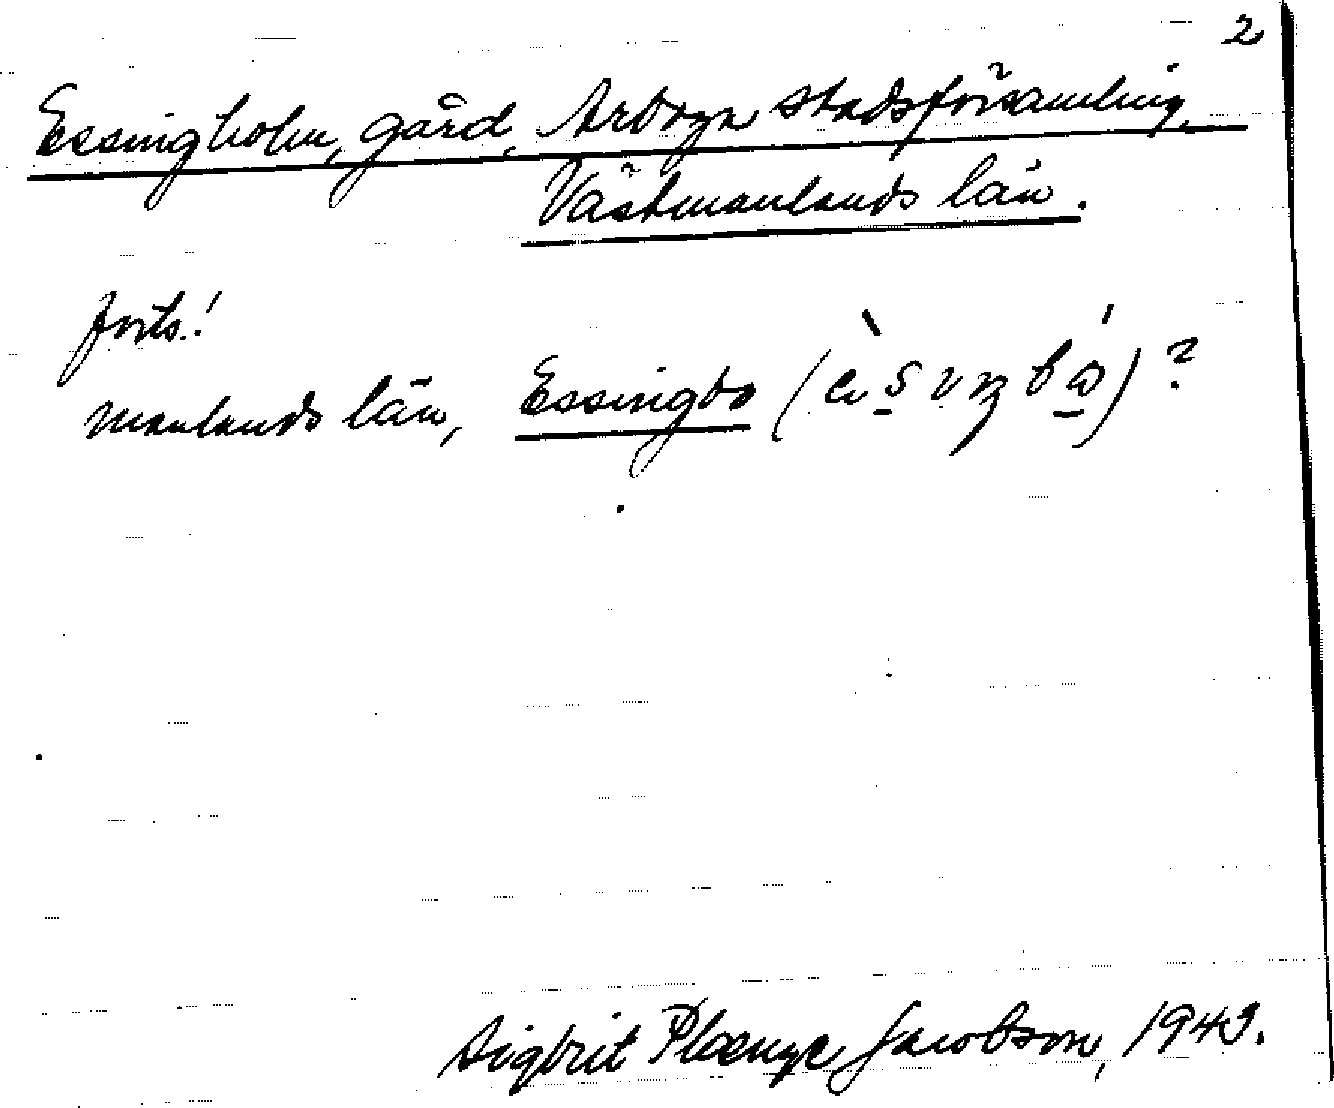 2
Essingholm, gård, Arboga stadsförsamling,
Västmanlands län.
forts.!
manlands län, Essingbo ( ) ?
Sigbrit Plænge Jacobson, 1943.